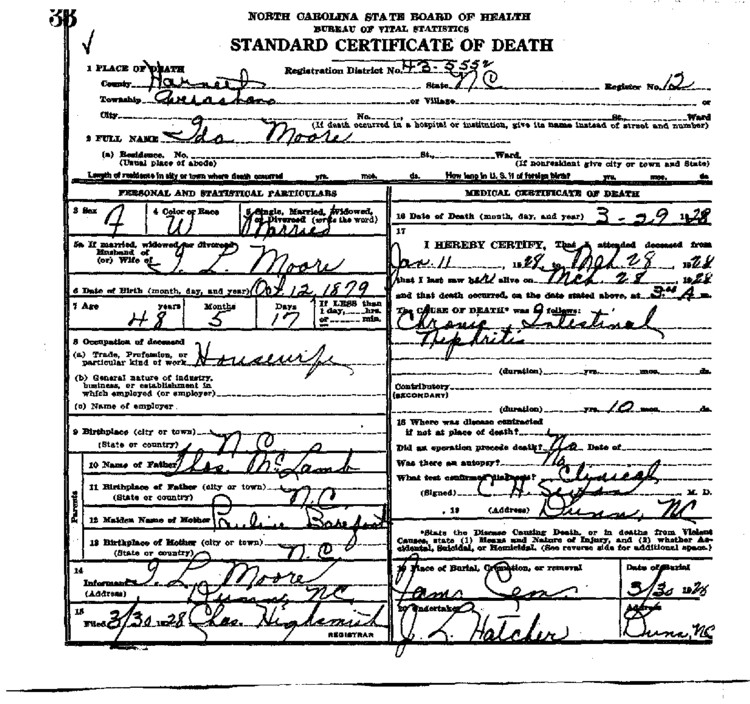 33
NORTH CAROLINA STATE BOARD OF HEALTH
BUREAU OF VITAL STATISTICS
STANDARD CERTIFICATE OF DEATH
1 PLACE OF DEATH Registration District No. 43-5552
County Harnett State NC Register No. 12
Township Averasboro or Village or
City No. St. Ward
(If death occurred in a hospital or institution, give its name instead of street and number)
2 FULL NAME Ida Moore
(a) Residence. No. St., Ward.
(Usual place of abode) (If nonresident give city or town and State)
Length of residence in city or town where death occurred yrs. mos. ds. How long in U. S. if of foreign birth? yrs. mos. ds.
PERSONAL AND STATISTICAL PARTICULARS
3 Sex 4 Color or Race 5 Single, Married, Widowed, or Divorced (write the word)
F W Married
5a If married, widowed or divorced
Husband of
(or) Wife of J. L. Moore
6 Date of Birth (month, day, and year) Oct. 12 1879
7 Age years Months Days If LESS than 1 day, hrs. or min.
48 5 17
8 Occupation of deceased
(a) Trade, Profession, or particular kind of work Housewife
(b) General nature of industry, business, or establishment in which employed (or employer)
(c) Name of employer
9 Birthplace (city or town)
(State or country) N C
Parents
10 Name of Father Thos McLamb
11 Birthplace of Father (city or town)
(State or country) N.C.
12 Maiden Name of Mother Pauline Barefoot
13 Birthplace of Mother (city or town)
(State or country) N.C.
14
Informant J. L. Moore
(Address) Dunn, NC
15
Filed 3/30 1928 Chas. Highsmith
REGISTRAR
MEDICAL CERTIFICATE OF DEATH
16 Date of Death (month, day, and year) 3-29 1928
17
I HEREBY CERTIFY, That I attended deceased from
Jan. 11, 1928, to Mch 28 1928
that I last saw her alive on Mch 28 1928
and that death occurred, on the date stated above, at 3 A m.
The CAUSE OF DEATH* was as follows:
Chronic Intestinal
Nephritis
(duration) yrs. mos. ds.
Contributory
(SECONDARY)
(duration) yrs. 10 mos. ds.
18 Where was disease contracted
if not at place of death?
Did an operation precede death? No Date of
Was there an autopsy? No
What test confirmed diagnosis? Clinical
(Signed) C H M. D.
, 19 (Address) Dunn, NC
*State the Disease Causing Death, or in deaths from Violent Causes, state (1) Means and Nature of Injury, and (2) whether Accidental, Suicidal, or Homicidal. (See reverse side for additional space.)
19 Place of Burial, Cremation, or removal Date of Burial
Cem 3/30 1928
20 Undertaker Address
J. L. Hatcher Dunn, NC